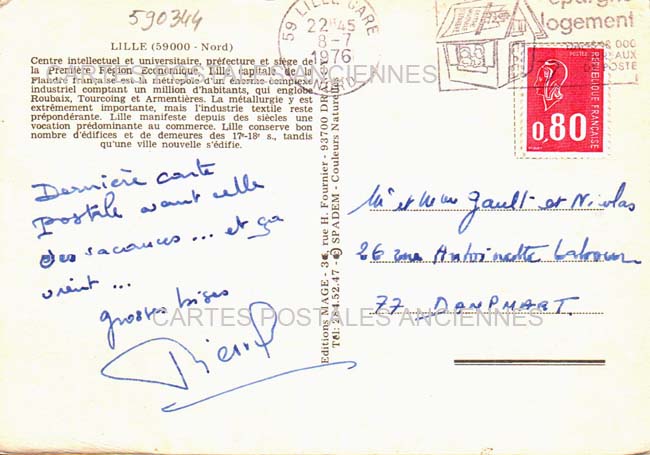 590344
59 LILLE GARE
22H45
8-7
1976
épargne
logement
BUREAUX
DE POSTE
LILLE (59000 - Nord)
Centre intellectuel et universitaire, préfecture et siège de
la Première Région Économique, Lille, capitale de la
Flandre française est la métropole d'un énorme complexe
industriel comptant un million d'habitants, qui englobe
Roubaix, Tourcoing et Armentières. La métallurgie y est
extrêmement importante, mais l'industrie textile reste
prépondérante. Lille manifeste depuis des siècles une
vocation prédominante au commerce. Lille conserve bon
nombre d'édifices et de demeures des 17e-18e s., tandis
qu'une ville nouvelle s'édifie.
CARTES POSTALES ANCIENNES
POSTES
RÉPUBLIQUE FRANÇAISE
0,80
Dernière carte
postale avant celle
des vacances... et ça
vient...
grosses bises
Pierre
Editions MAGE, rue H. Fournier - 93700 DRANCY
Tél. © SPADEM - Couleurs Naturelles
Mr et Mme Gault et Nicolas
26 rue Antoinette
77 DAMPMART.
CARTES POSTALES ANCIENNES